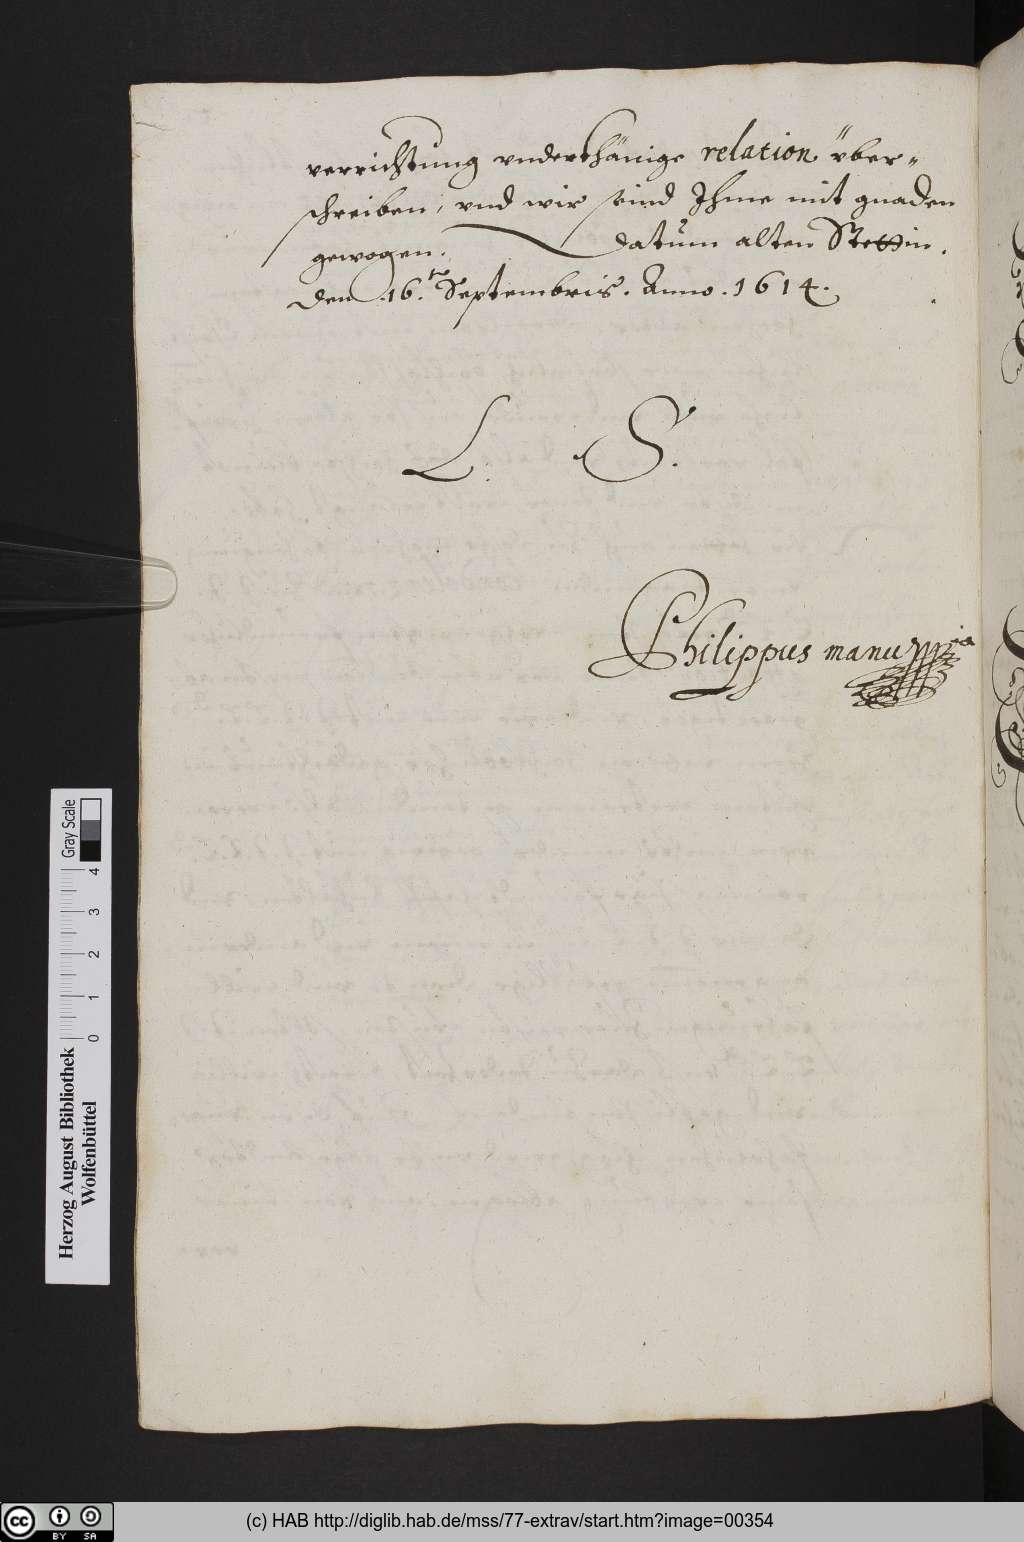 verrichtung vnderthänige relation über„
schreiben, vnd wir seind Ihme mit gnaden
gewogen. datum alten Stettin.
den .16.ten Septembris. Anno .1614.
L. S.
Philippus manu ppria
Gray Scale
0 1 2 3 4
Herzog August Bibliothek
Wolfenbüttel
cc BY SA
(c) HAB http://diglib.hab.de/mss/77-extrav/start.htm?image=00354